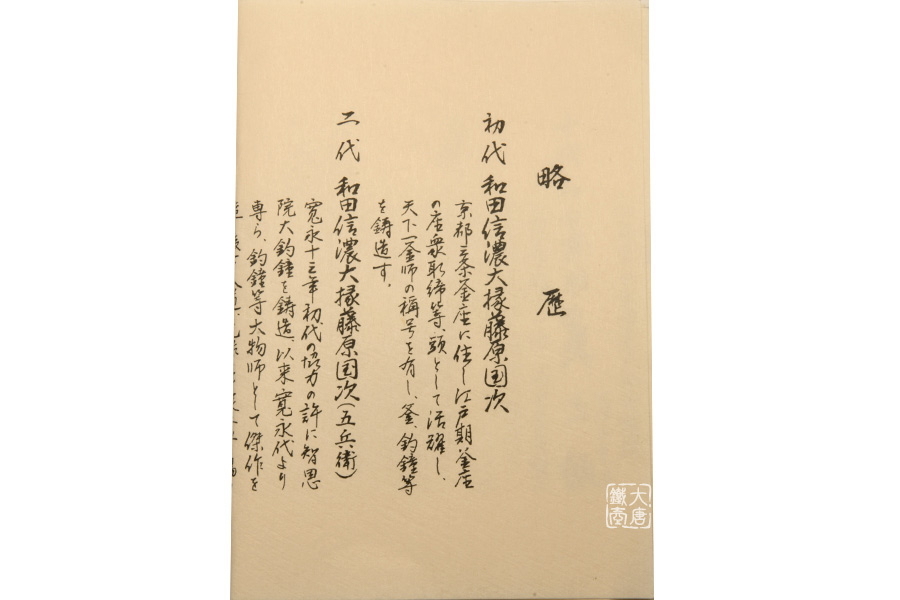 略歴
初代 和田信濃大掾藤原国次
京都三条釜座に住し江戸期釜座
の座衆取締等、頭として活躍し、
天下一釜師の稱号を有し、釜、釣鐘等
を鋳造す。
二代 和田信濃大掾藤原国次(五兵衛)
寛永十三年初代の協力の許に智恩
院大釣鐘を鋳造、以来寛永代より
専ら、釣鐘等大物師として傑作を
大唐
鐵壺